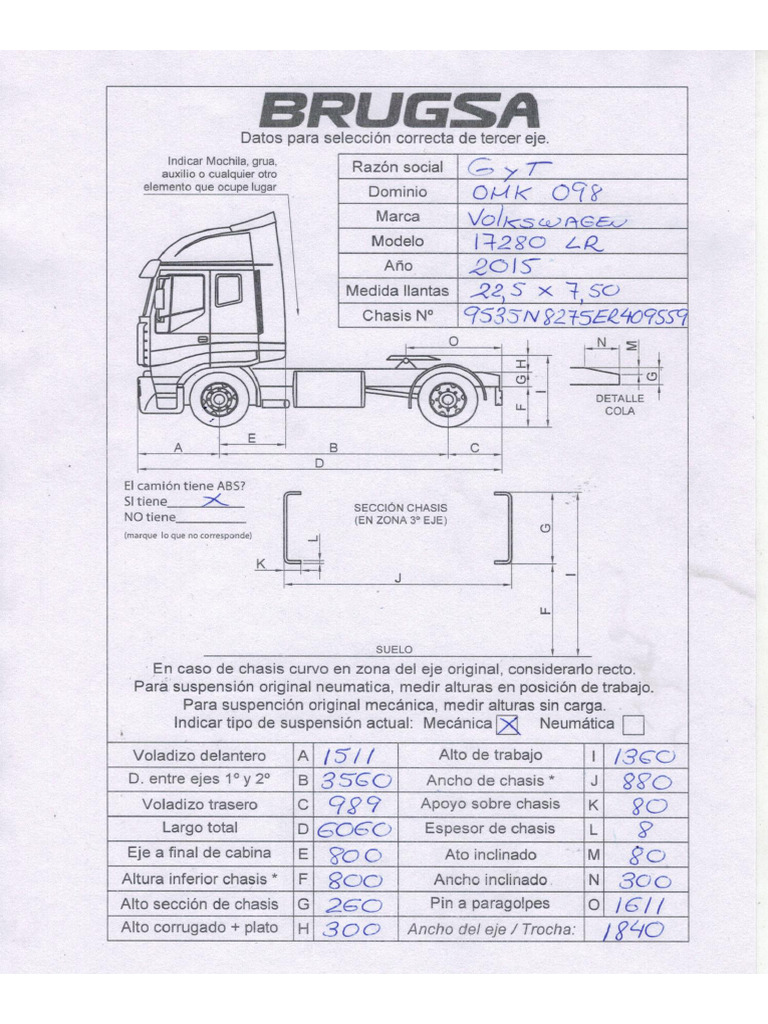 BRUGSA
Datos para selección correcta de tercer eje.
Indicar Mochila, grua,
auxilio o cualquier otro
elemento que ocupe lugar
Razón social GyT
Dominio OMK 098
Marca VOLKSWAGEN
Modelo 17280 LR
Año 2015
Medida llantas 22,5 x 7,50
Chasis Nº 9535N8275ER409559
O N M
H
G G
I
F
DETALLE
COLA
A E B C
D
El camión tiene ABS?
SI tiene X
NO tiene
(marque lo que no corresponde)
SECCIÓN CHASIS
(EN ZONA 3º EJE)
L G
K I
J
F
SUELO
En caso de chasis curvo en zona del eje original, considerarlo recto.
Para suspensión original neumatica, medir alturas en posición de trabajo.
Para suspención original mecánica, medir alturas sin carga.
Indicar tipo de suspensión actual: Mecánica X Neumática
Voladizo delantero A 1511 Alto de trabajo I 1360
D. entre ejes 1º y 2º B 3560 Ancho de chasis * J 880
Voladizo trasero C 989 Apoyo sobre chasis K 80
Largo total D 6060 Espesor de chasis L 8
Eje a final de cabina E 800 Ato inclinado M 80
Altura inferior chasis * F 800 Ancho inclinado N 300
Alto sección de chasis G 260 Pin a paragolpes O 1611
Alto corrugado + plato H 300 Ancho del eje / Trocha: 1840